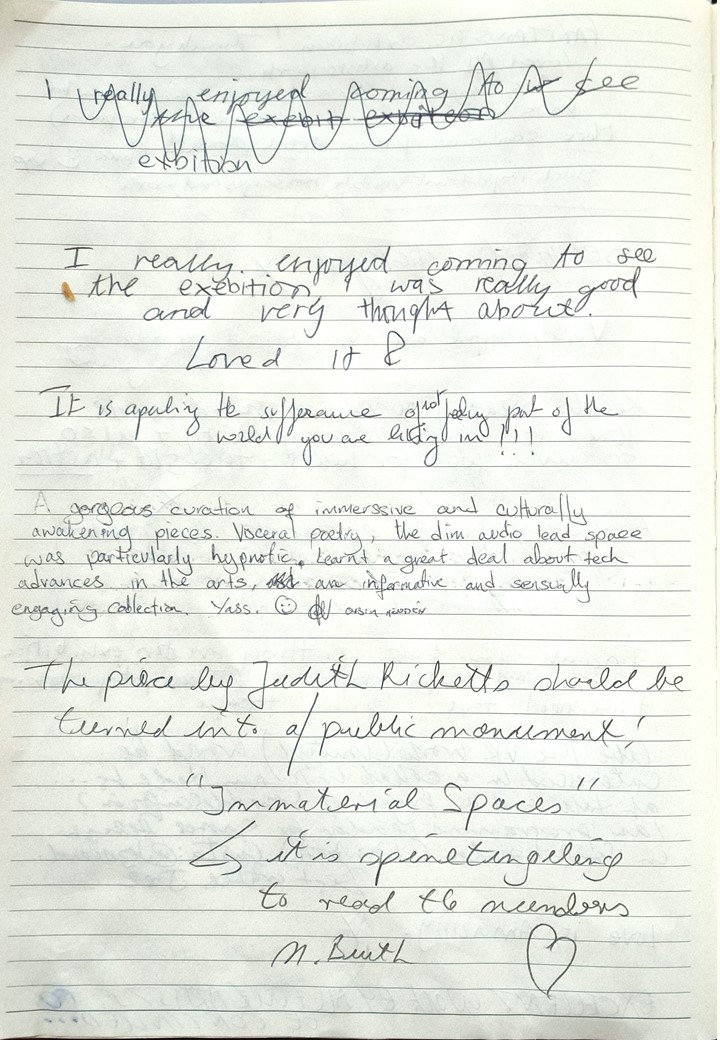 I really enjoyed coming to see
the exebit
exbition
I really enjoyed coming to see
the exebition I was really good
and very thought about.
Loved it
It is apaling the sufferance of not feeling part of the
world you are living in !!!
A gorgeous curation of immerssive and culturally
awakening pieces. Visceral poetry, the dim audio lead space
was particularly hypnotic. Learnt a great deal about tech
advances in the arts, an informative and sensually
engaging collection. Yass. ☺
The piece by Judith Ricketts should be
turned into a public monument!
"Immaterial Spaces"
it is spinetingeling
to read the numbers